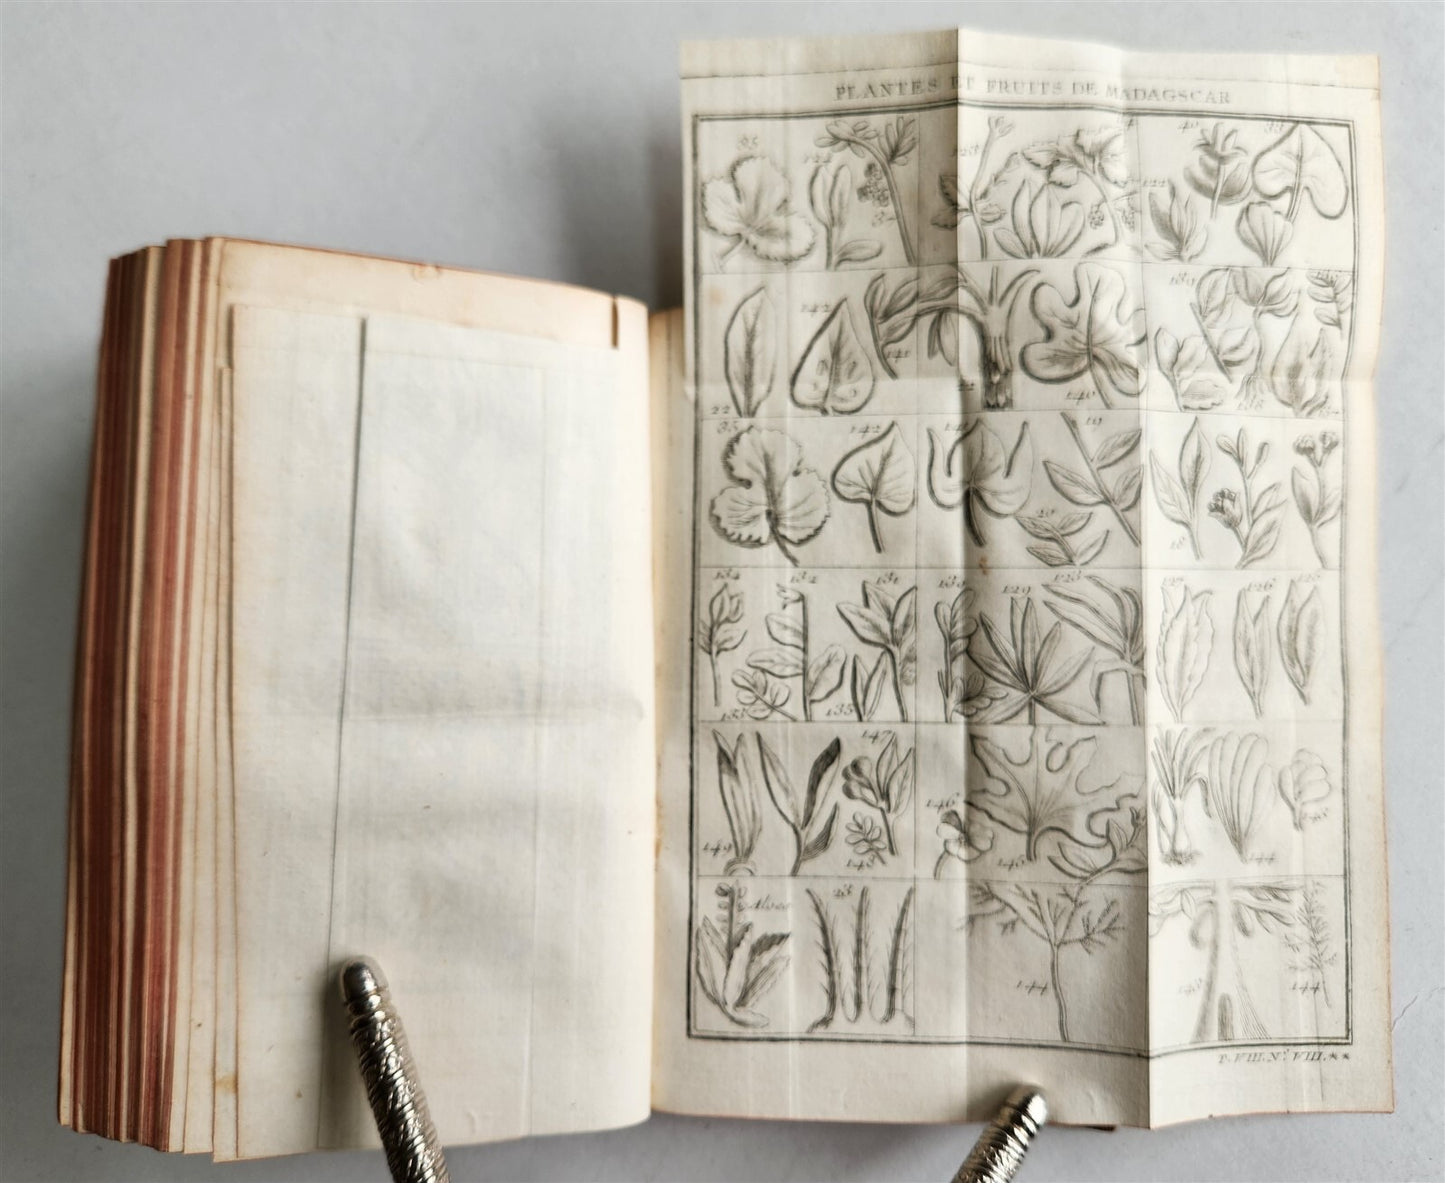 PLANTES ET FRUITS DE MADAGSCAR
35 122 123 40 33
122
142 139
141
22 140 138 137
35 142 141 19
20 18
134 132 131 130 129 128 127 126 125
133 135
147
149 148 146 145 144
Aloes 23
144 143 144
P. VIII. N.º VIII.**